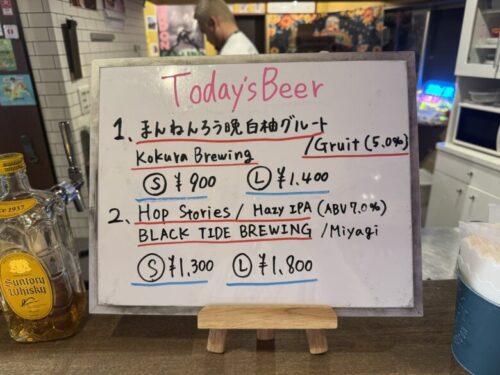 Today's Beer
1. まんねんろう晩白柚グルート
Kokura Brewing /Gruit (5.0%)
Ⓢ ¥900 Ⓛ ¥1,400
2. Hop Stories / Hazy IPA (ABV 7.0%)
BLACK TIDE BREWING /Miyagi
Ⓢ ¥1,300 Ⓛ ¥1,800
SINCE 1937
Suntory
Whisky